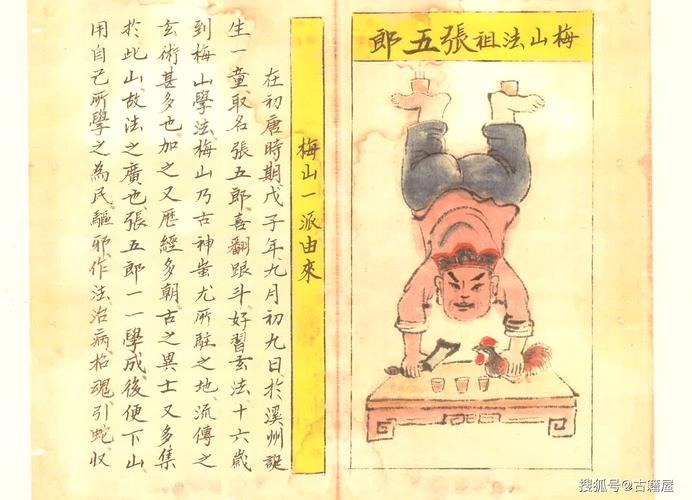 梅山法祖張五郎
梅山一派由來
在初唐時期戊子年九月初九日於溪州誕
生一童取名張五郎喜翻跟斗好習玄法十六歲
到梅山學法梅山乃古神蚩尤所駐之地流傳之
玄術甚多也加之又歷經多朝古之異士又多集
於此山故法之廣也張五郎一一學成後便下山
用自己所學之為民驅邪作法治病招魂引蛇収
搜狐号@古籍屋